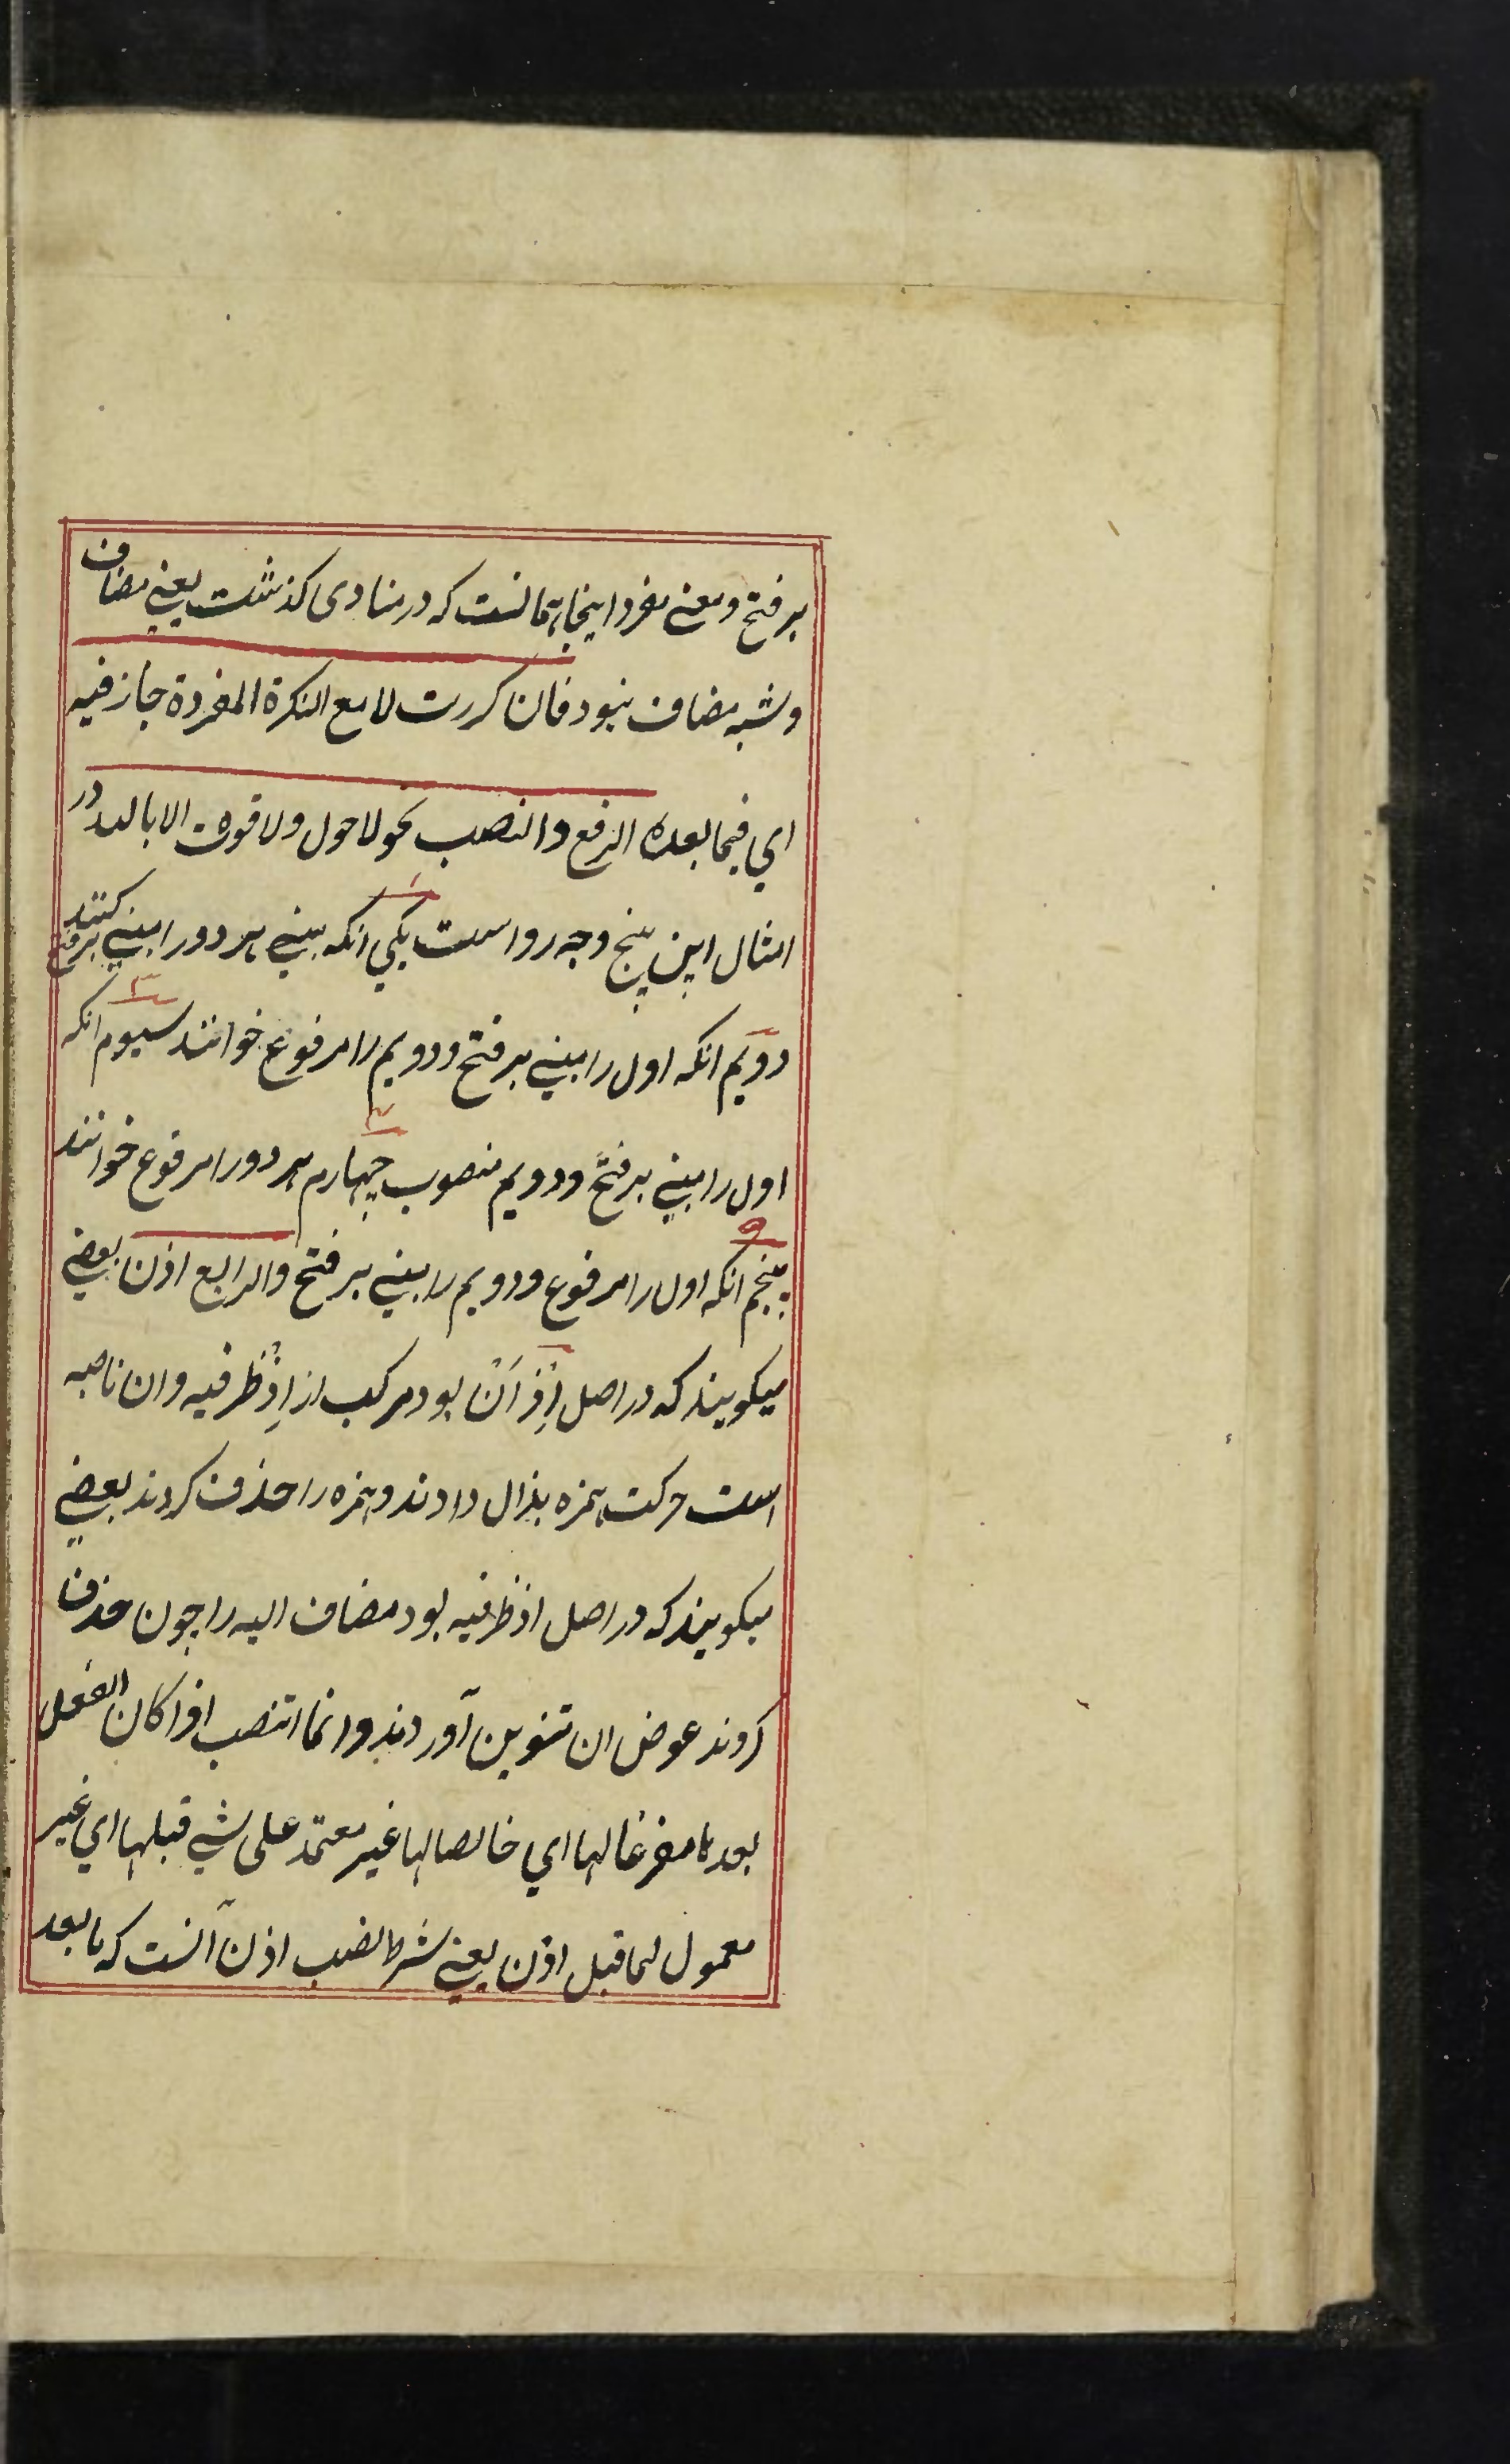 بر فتح و معنی مفرد اینجا همانست که در منادی کذشت یعنی مضاف
و شبه مضاف نبود فان کررت لا مع النکرة المفردة جاز فیه
ای فیما بعده الرفع والنصب نحو لا حول ولا قوة الا بالله و در
امثال این پنج وجه روا است یکی انکه یعنی هر دو را مبنی بر فتح کنند
دویم انکه اول را مبنی بر فتح و دویم را مرفوع خوانند سیوم انکه
اول را مبنی بر فتح و دویم منصوب چهارم هر دو را مرفوع خوانند
پنجم انکه اول را مرفوع و دویم را مبنی بر فتح والرابع اذن بعضی
میکویند که در اصل اِذْ اَنْ بود مرکب از اِذْ ظرفیه و ان ناصبه
است حرکت همزه بذال دادند و همزه را حذف کردند بعضی
میکویند که در اصل اذ ظرفیه بود مضاف الیه را چون حذف
کردند عوض ان تنوین آوردند وانما تنصب اذا کان الفعل
بعدها مفرغا لها ای خالصا لها غیر معتمد علی شیء قبلها ای غیر
معمول لما قبل اذن یعنی شرط نصب اذن آنست که ما بعد